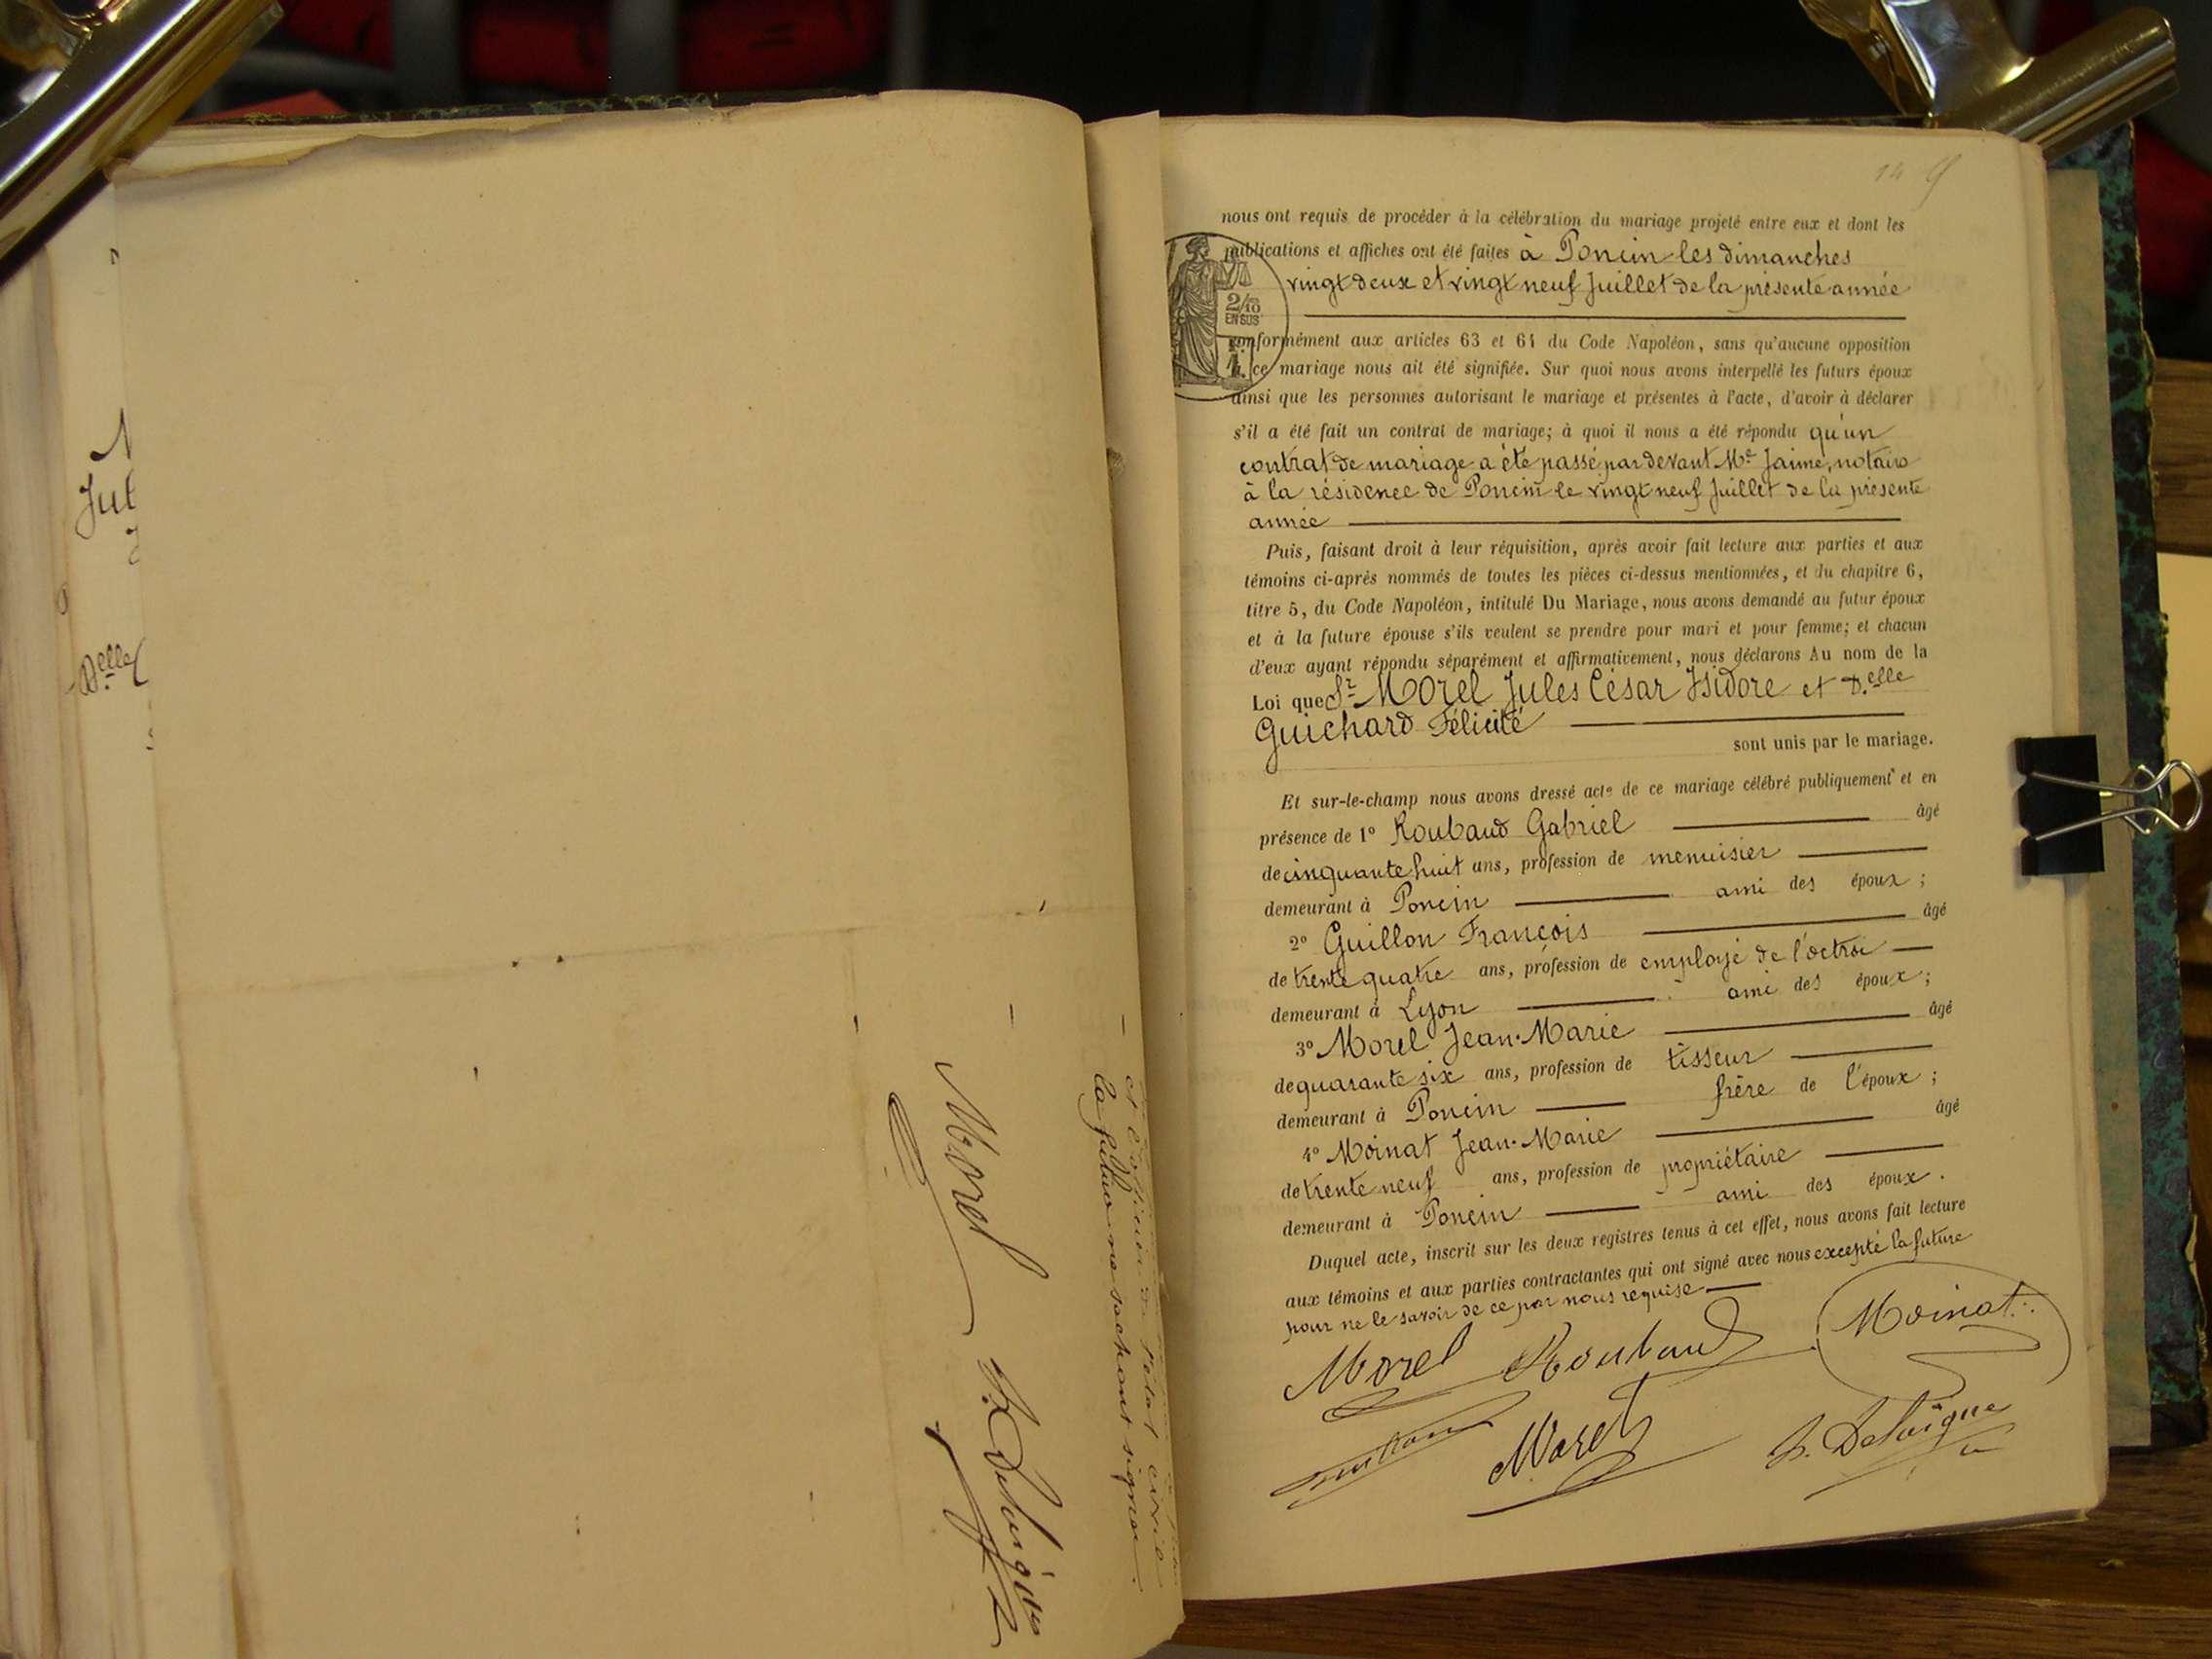 Jul
D.elle
et l'officier de l'état civil
la future ne sachant signer.
Morel
14 9
nous ont requis de procéder à la célébration du mariage projeté entre eux et dont les
publications et affiches ont été faites à Poncin les dimanches
vingt deux et vingt neuf Juillet de la présente année
2/10
EN SUS
conformément aux articles 63 et 64 du Code Napoléon, sans qu'aucune opposition
à ce mariage nous ait été signifiée. Sur quoi nous avons interpellé les futurs époux
ainsi que les personnes autorisant le mariage et présentes à l'acte, d'avoir à déclarer
s'il a été fait un contrat de mariage; à quoi il nous a été répondu qu'un
contrat de mariage a été passé par devant Me Jaime, notaire
à la résidence de Poncin le vingt neuf Juillet de la présente
année
Puis, faisant droit à leur réquisition, après avoir fait lecture aux parties et aux
témoins ci-après nommés de toutes les pièces ci-dessus mentionnées, et du chapitre 6,
titre 5, du Code Napoléon, intitulé Du Mariage, nous avons demandé au futur époux
et à la future épouse s'ils veulent se prendre pour mari et pour femme; et chacun
d'eux ayant répondu séparément et affirmativement, nous déclarons Au nom de la
Loi que Sr Morel Jules César Isidore et D.elle
Guichard Félicité
sont unis par le mariage.
Et sur-le-champ nous avons dressé acte de ce mariage célébré publiquement et en
présence de 1º Roubaud Gabriel âgé
de cinquante huit ans, profession de menuisier
demeurant à Poncin ami des époux ;
2º Guillon François âgé
de trente quatre ans, profession de employé de l'octroi
demeurant à Lyon ami des époux ;
3º Morel Jean-Marie âgé
de quarante six ans, profession de tisseur
demeurant à Poncin frère de l'époux ;
4º Moinat Jean-Marie âgé
de trente neuf ans, profession de propriétaire
demeurant à Poncin ami des époux.
Duquel acte, inscrit sur les deux registres tenus à cet effet, nous avons fait lecture
aux témoins et aux parties contractantes qui ont signé avec nous excepté la future
pour ne le savoir de ce par nous requise
Morel Roubaud Moinat
Morel